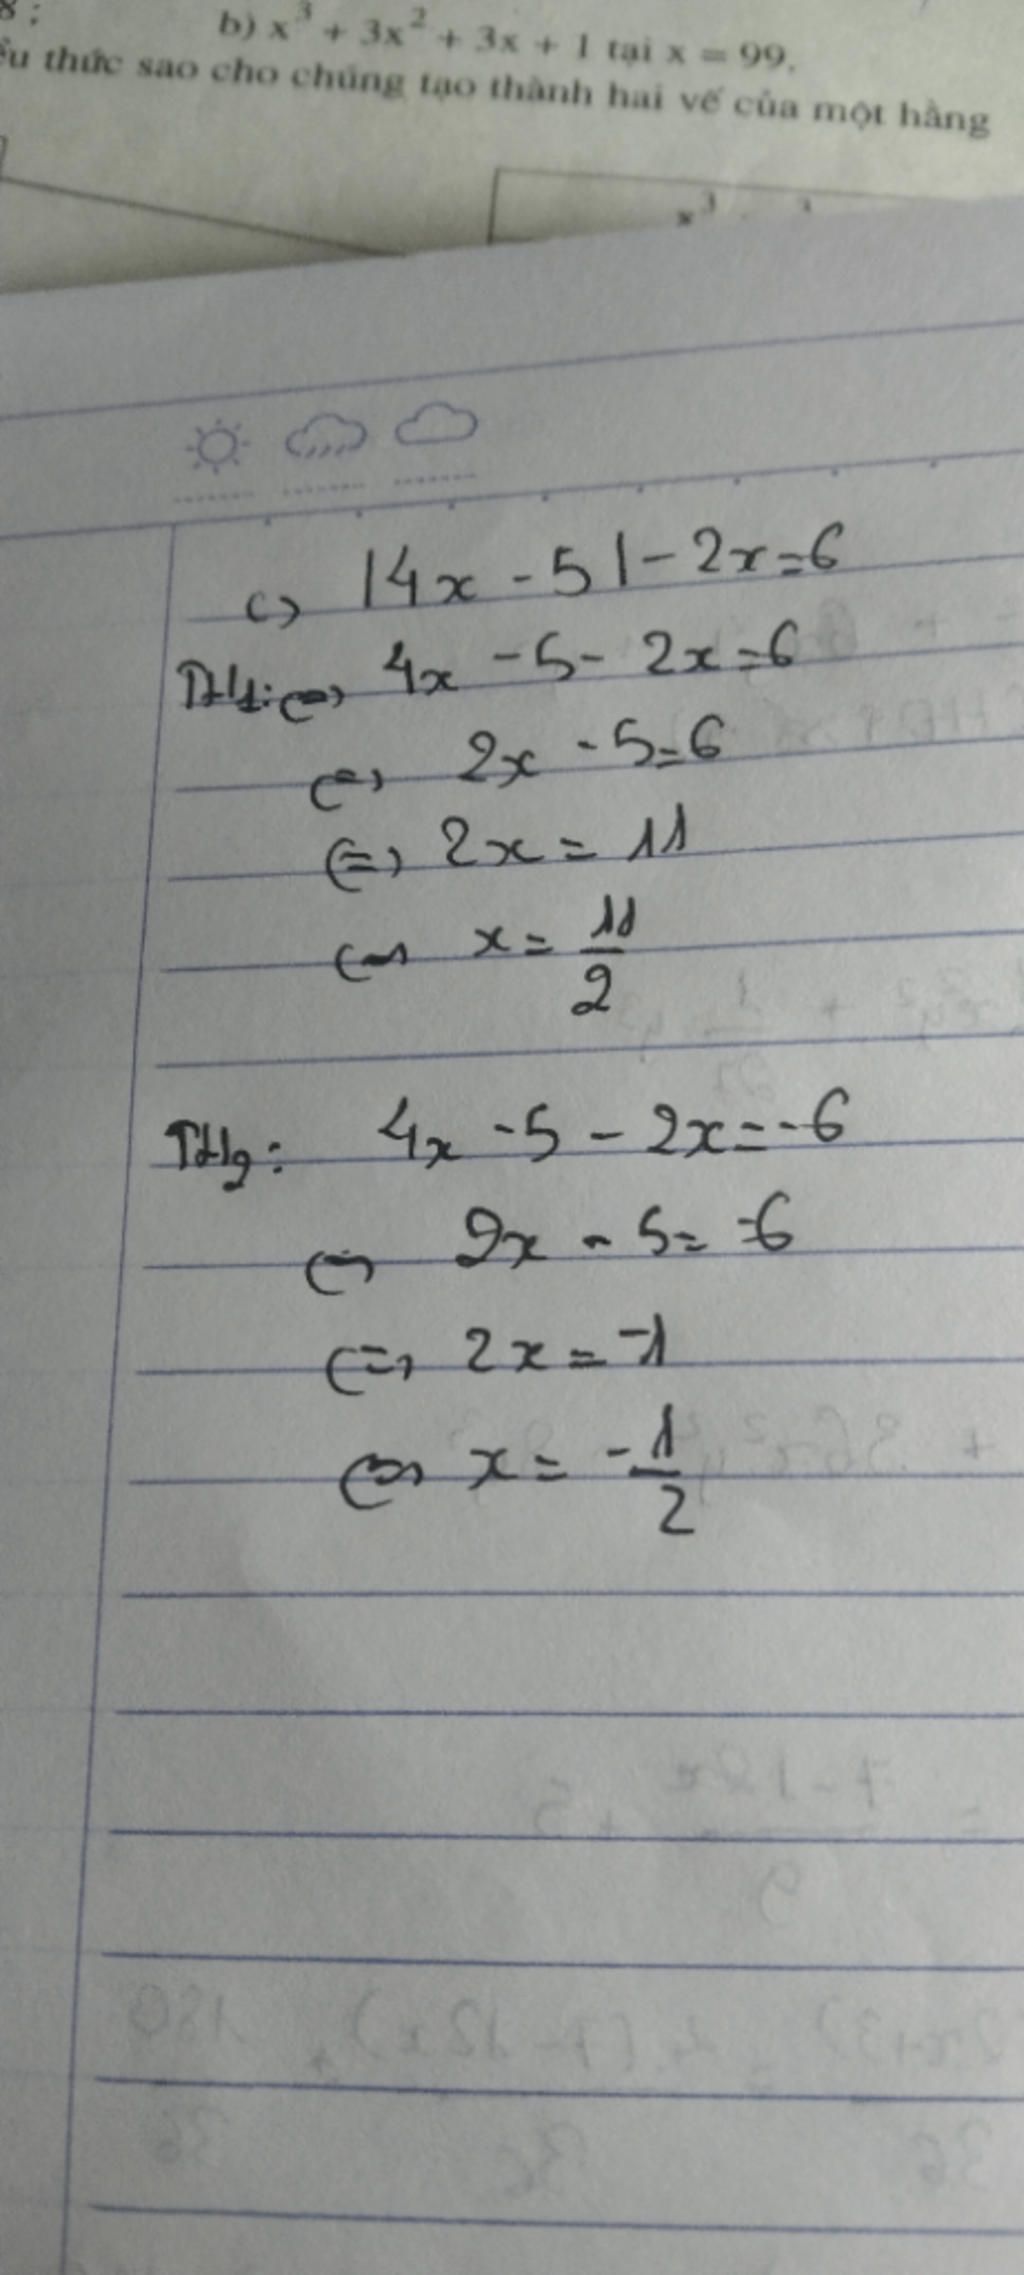 8 :
b) x³ + 3x² + 3x + 1 tại x = 99.
thức sao cho chúng tạo thành hai vế của một hằng
x³
c) |4x - 5| - 2x = 6
TH1: <=> 4x - 5 - 2x = 6
<=> 2x - 5 = 6
<=> 2x = 11
<=> x = 11/2
TH2: 4x - 5 - 2x = -6
<=> 2x - 5 = -6
<=> 2x = -1
<=> x = -1/2